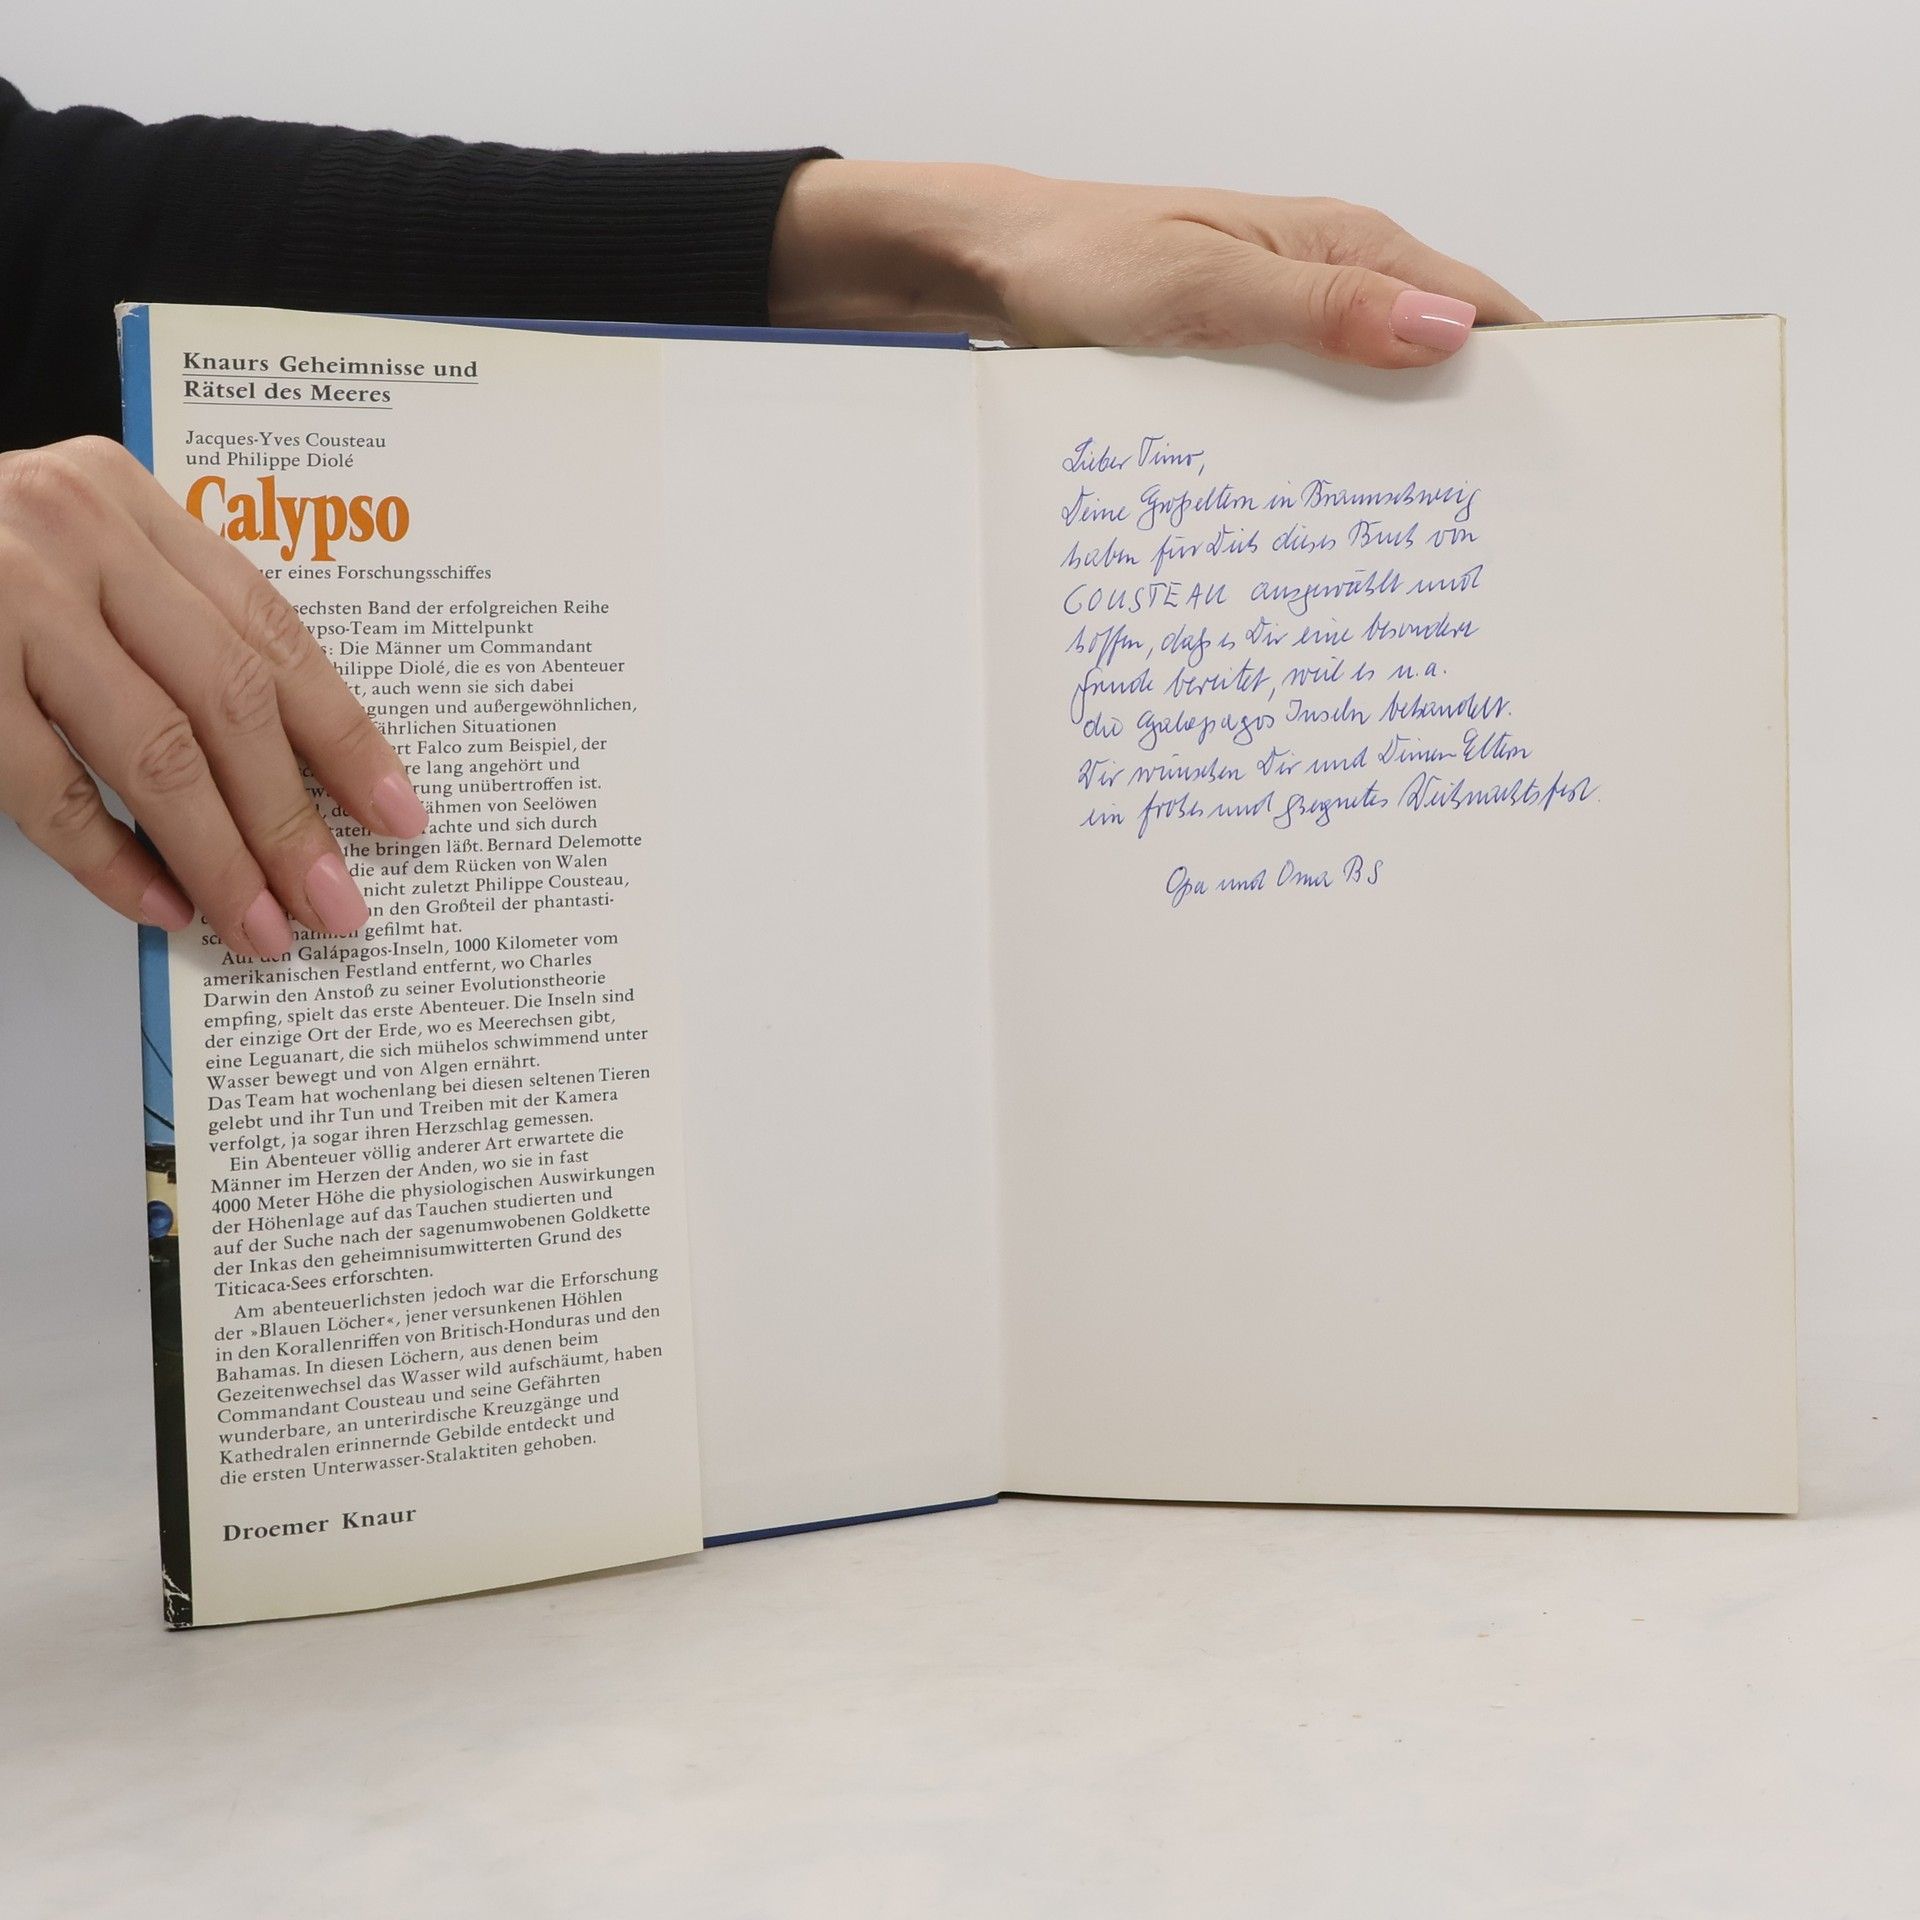 Knaurs Geheimnisse und
Rätsel des Meeres
Jacques-Yves Cousteau
und Philippe Diolé
Calypso
eines Forschungsschiffes
sechsten Band der erfolgreichen Reihe
im Mittelpunkt
Die Männer um Commandant
Philippe Diolé, die es von Abenteuer
auch wenn sie sich dabei
und außergewöhnlichen,
Situationen
Falco zum Beispiel, der
lang angehört und
unübertroffen ist.
Zähmen von Seelöwen
und sich durch
bringen läßt. Bernard Delemotte
die auf dem Rücken von Walen
nicht zuletzt Philippe Cousteau,
den Großteil der phantasti-
gefilmt hat.
Auf den Galápagos-Inseln, 1000 Kilometer vom
amerikanischen Festland entfernt, wo Charles
Darwin den Anstoß zu seiner Evolutionstheorie
empfing, spielt das erste Abenteuer. Die Inseln sind
der einzige Ort der Erde, wo es Meerechsen gibt,
eine Leguanart, die sich mühelos schwimmend unter
Wasser bewegt und von Algen ernährt.
Das Team hat wochenlang bei diesen seltenen Tieren
gelebt und ihr Tun und Treiben mit der Kamera
verfolgt, ja sogar ihren Herzschlag gemessen.
Ein Abenteuer völlig anderer Art erwartete die
Männer im Herzen der Anden, wo sie in fast
4000 Meter Höhe die physiologischen Auswirkungen
der Höhenlage auf das Tauchen studierten und
auf der Suche nach der sagenumwobenen Goldkette
der Inkas den geheimnisumwitterten Grund des
Titicaca-Sees erforschten.
Am abenteuerlichsten jedoch war die Erforschung
der »Blauen Löcher«, jener versunkenen Höhlen
in den Korallenriffen von Britisch-Honduras und den
Bahamas. In diesen Löchern, aus denen beim
Gezeitenwechsel das Wasser wild aufschäumt, haben
Commandant Cousteau und seine Gefährten
wunderbare, an unterirdische Kreuzgänge und
Kathedralen erinnernde Gebilde entdeckt und
die ersten Unterwasser-Stalaktiten gehoben.
Droemer Knaur
Lieber Timo,
Deine Großeltern in Braunschweig
haben für Dich dieses Buch von
COUSTEAU ausgewählt und
hoffen, daß es Dir eine besondere
Freude bereitet, weil es u.a.
die Galapagos Inseln behandelt.
Wir wünschen Dir und Deinen Eltern
ein frohes und gesegnetes Weihnachtsfest.
Opa und Oma BS